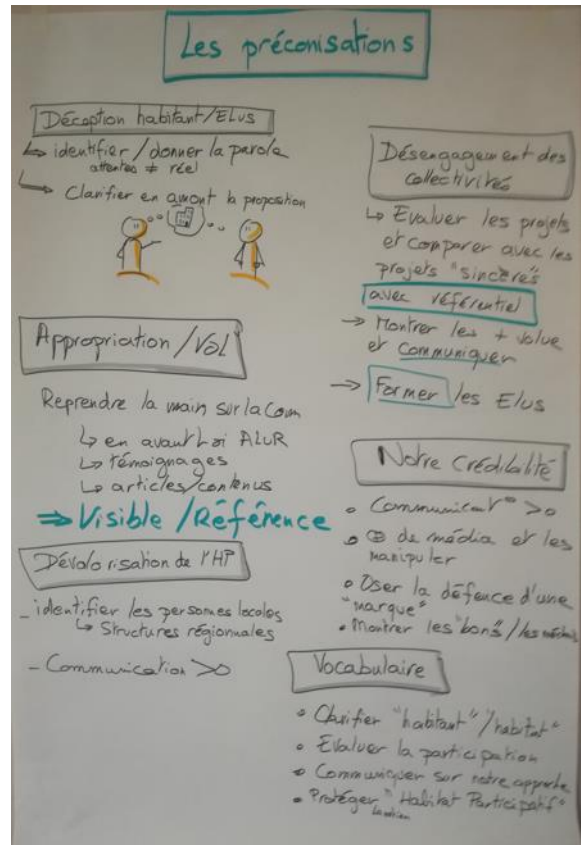 Les préconisations
Déception habitant/ELus
↳ identifier / donner la parole
attentes ≠ réel
↳ Clarifier en amont la proposition
Appropriation / Vol
Reprendre la main sur la Com
↳ en avant Loi ALUR
↳ témoignages
↳ articles/contenus
⇒ Visible / Référence
Dévalorisation de l'HP
_ identifier les personnes locales
↳ Structures régionnales
- Communication >0
Désengagement des
collectivités
↳ Evaluer les projets
et comparer avec les
projets "sincères"
avec référentiel
→ Montrer les + value
et communiquer
→ Former les Elus
Notre Crédibilité
• Communicat° >0
• ⊕ de média et les
manipuler
• Oser la défence d'une
"marque"
• Montrer les "bons" / les
Vocabulaire
• Clarifier "habitant" / "habitat"
• Evaluer la participation
• Communiquer sur notre approche
• Protéger "Habitat Participatif"